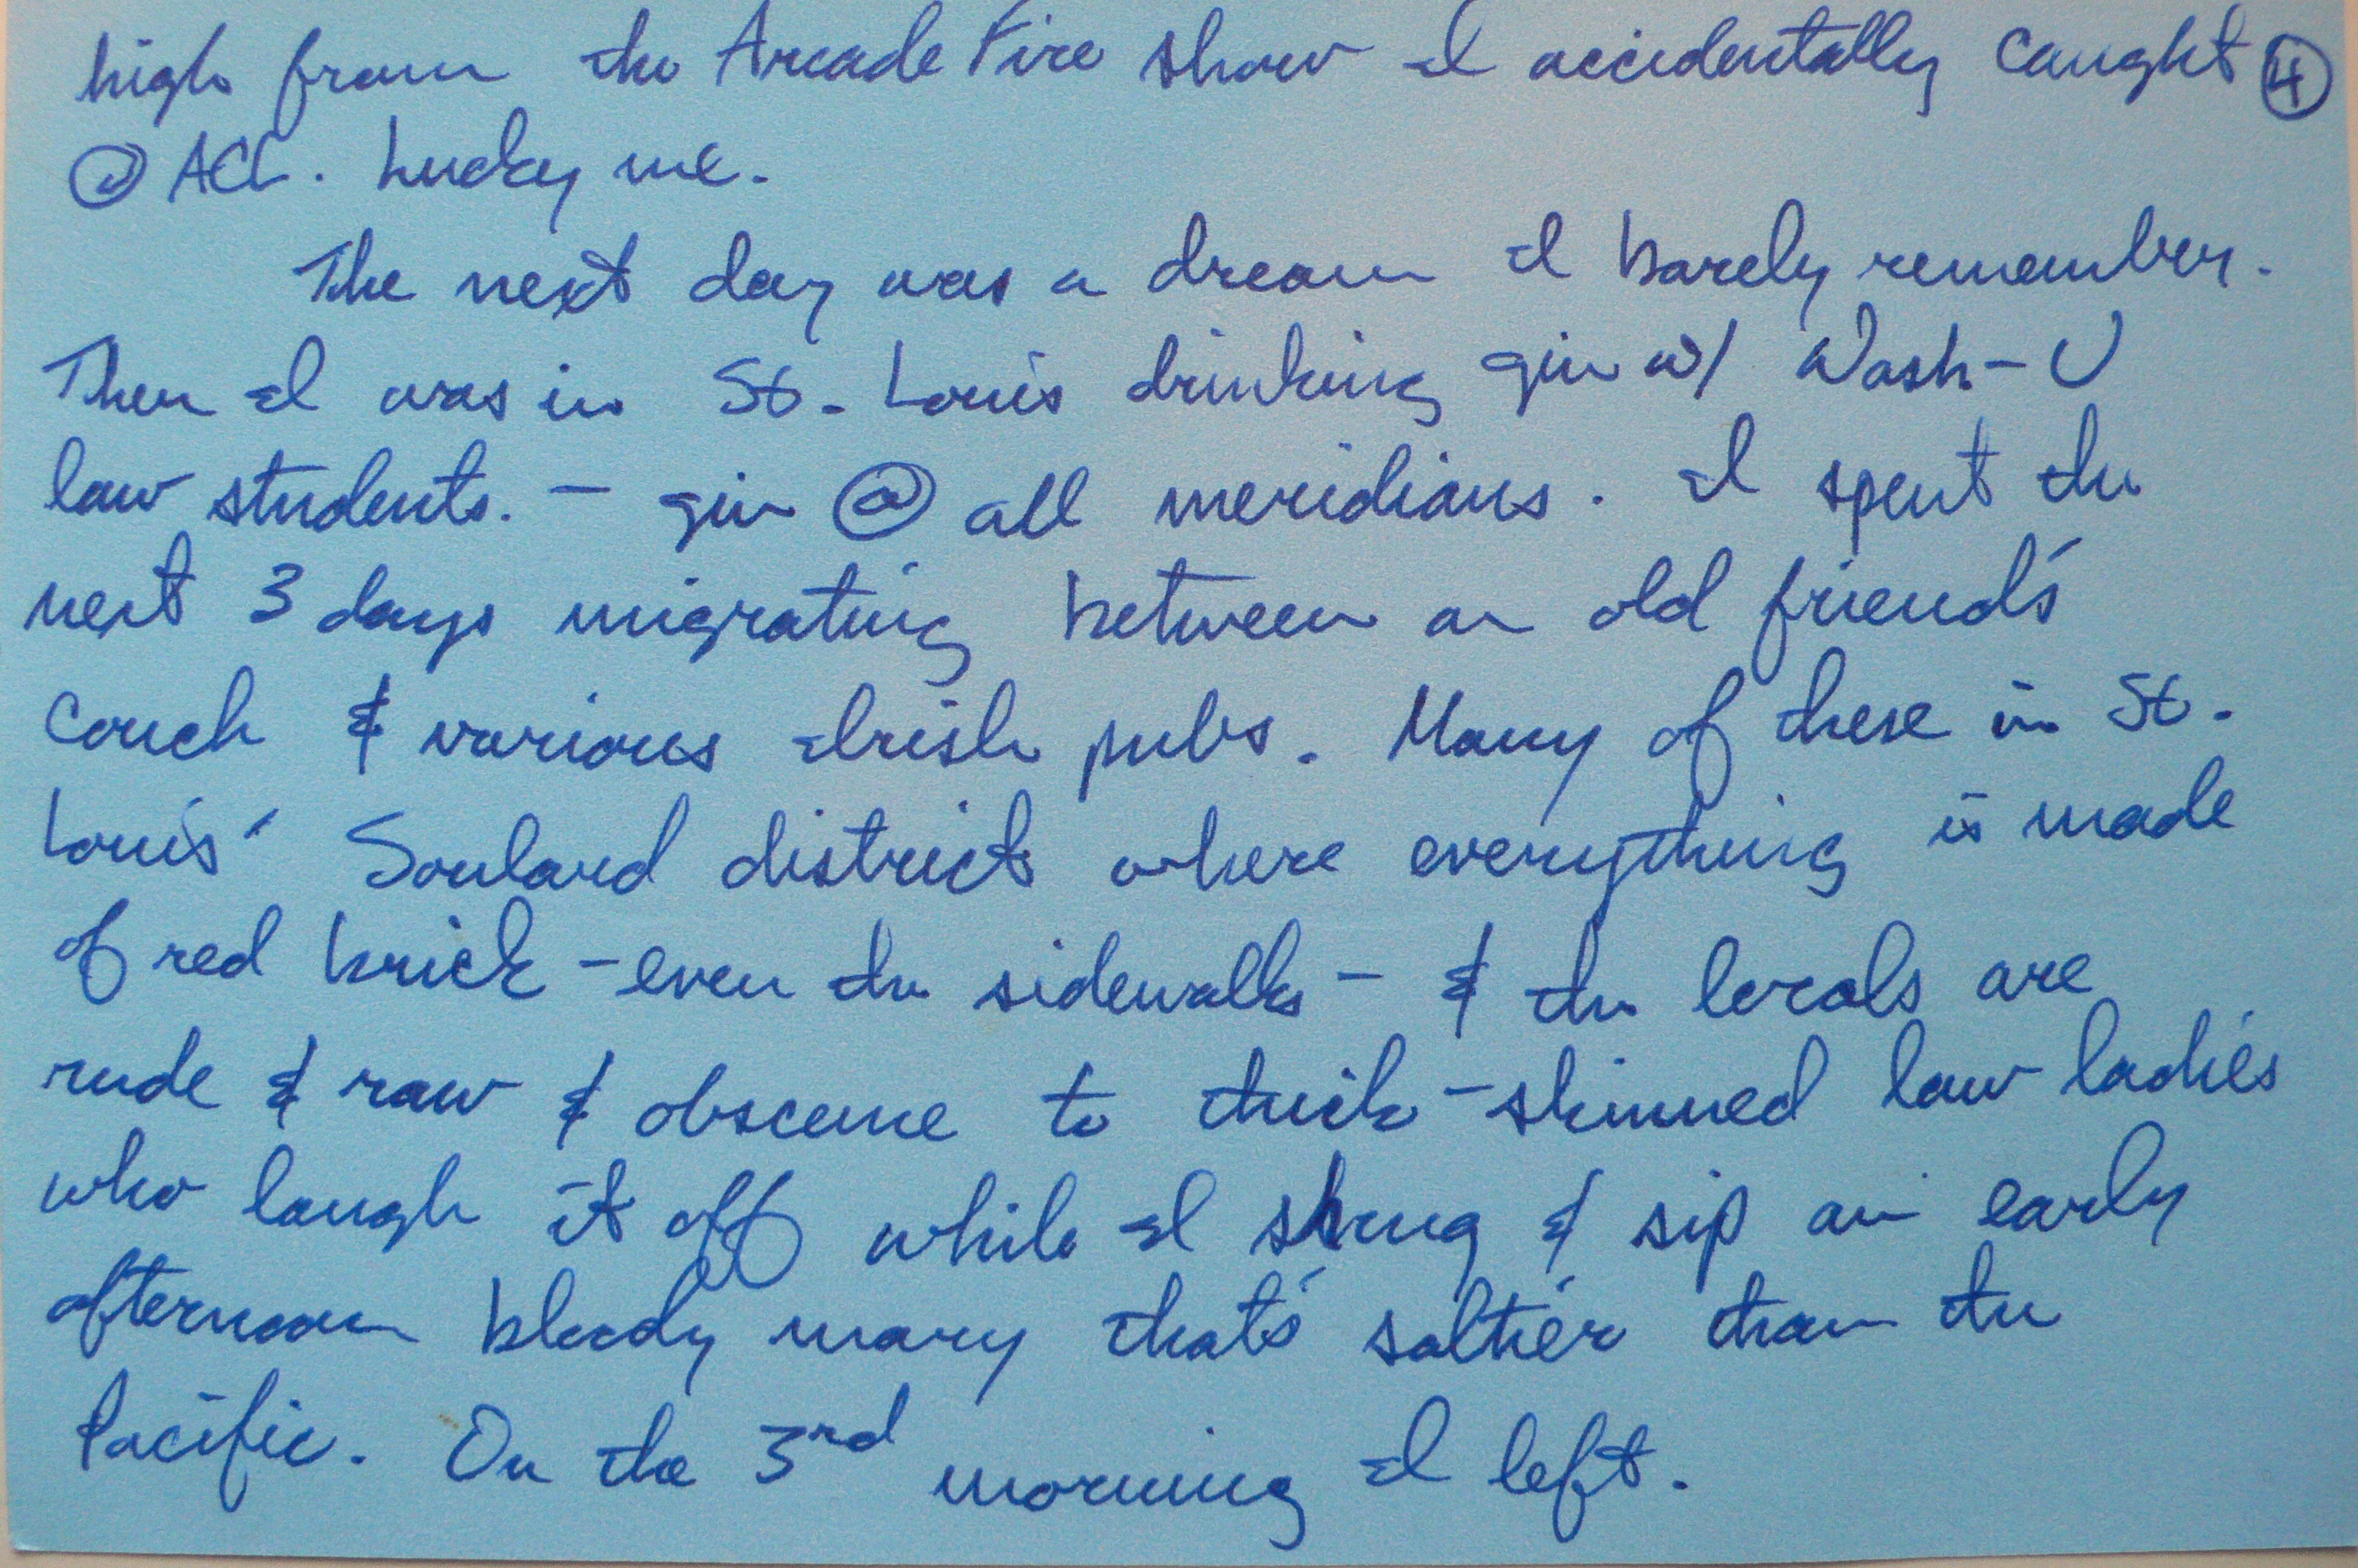 high from the Arcade Fire show I accidentally caught ④
@ ACL. Lucky me.
The next day was a dream I barely remember.
Then I was in St. Louis drinking gin w/ Wash-U
law students. – gin @ all meridians. I spent the
next 3 days migrating between an old friend's
couch & various Irish pubs. Many of these in St.
Louis' Soulard district where everything is made
of red brick – even the sidewalks – & the locals are
rude & raw & obscene to thick-skinned law ladies
who laugh it off while I shrug & sip an early
afternoon bloody mary that's saltier than the
Pacific. On the 3rd morning I left.